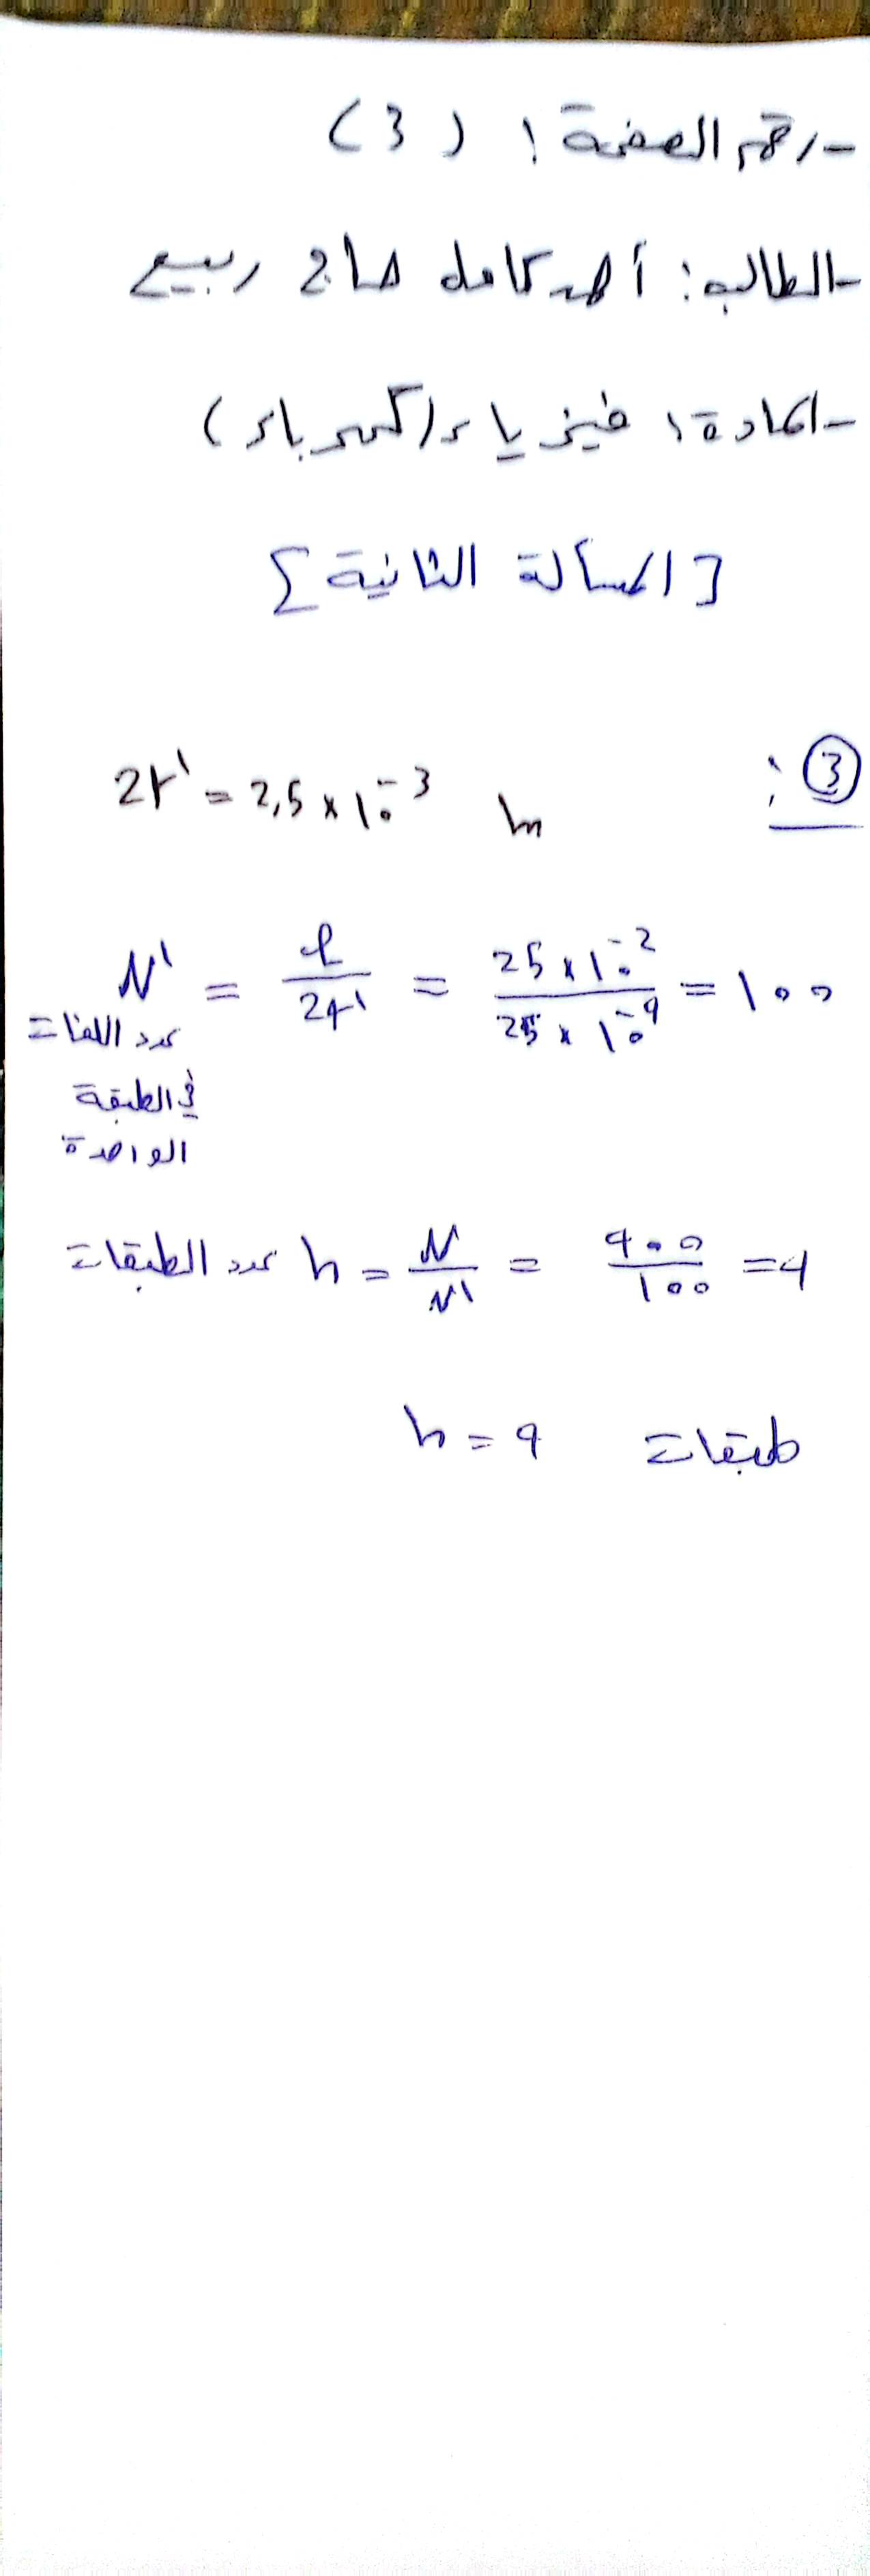 -رقم الصفحة: (3)
-الطالب: أحمد كامل حاج ربيع
-المادة: فيزياء (كهرباء)
[المسألة الثانية]
③:
2r' = 2,5 × 10⁻³ m
N' = ℓ / 2r' = 25 × 10⁻² / 25 × 10⁻⁴ = 100
عدد اللفات
في الطبقة
الواحدة
عدد الطبقات n = N / N' = 400 / 100 = 4
n = 4 طبقات